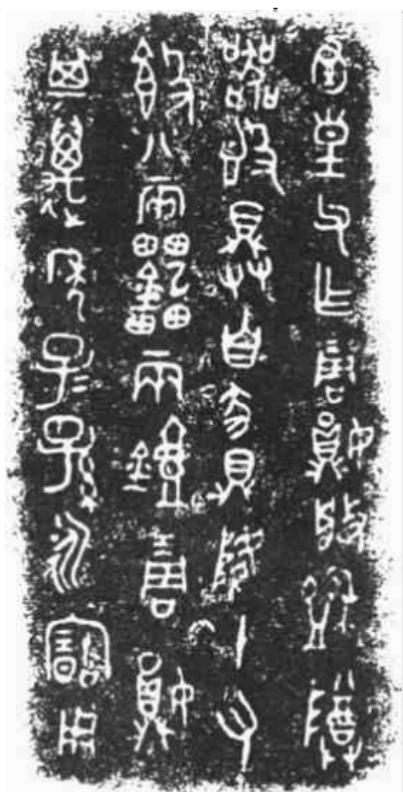 圅皇父乍琱娟般盉尊
器𣪘具自豕鼎降十又
𣪘八兩鑘兩鎧琱娟
其萬年子子孫孫永寶用